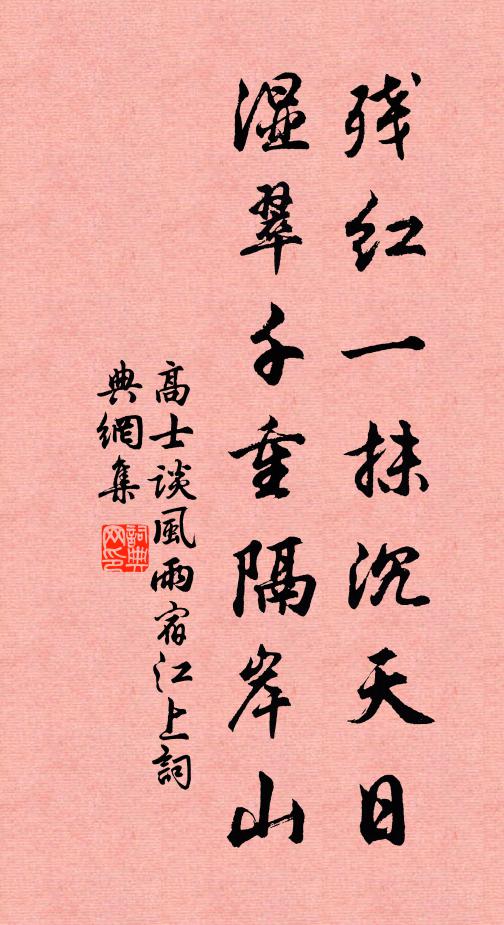 残红一抹沉天日
湿翠千重隔岸山
高士谈風雨宿江上詞
典網集
詞典网印